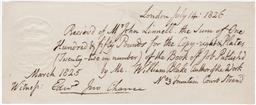 London July 14. 1826
Received of Mr John Linnell, the Sum of One
Hundred & fifty Pounds for the Copy-right & Plates
(Twenty-two in number) of the Book of Job. Publishd
March 1825 by Me. William Blake Author of the Work
Witness: Edwd Jno Chance No 3 Fountain Court Strand